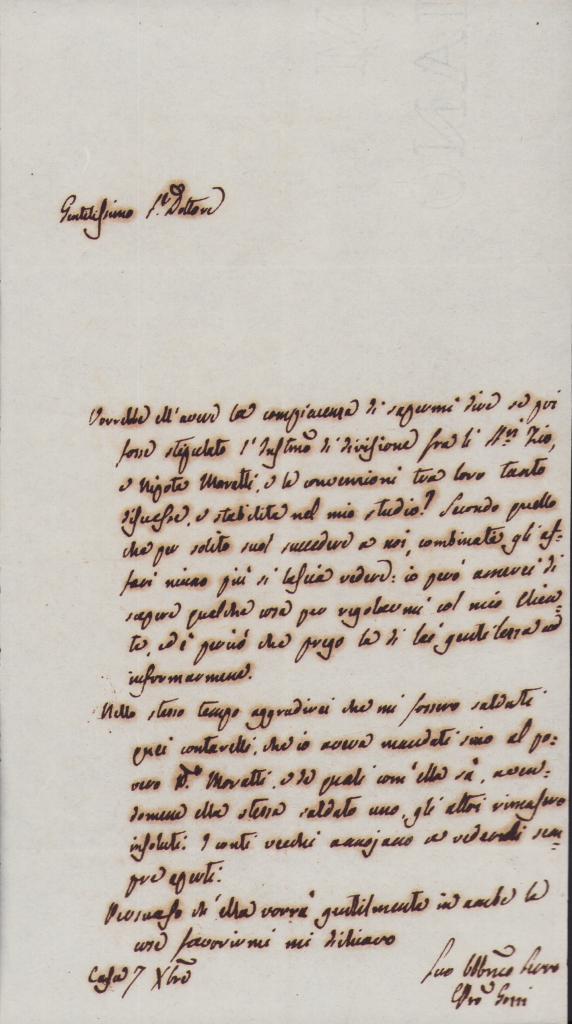 Gentilissimo Sr. Dottore
Vorrebbe ell'avere la compiacenza di sapermi dire se poi
fosse stipulato l'Instmo di divisione fra li Sri Zio,
e Nipote Moretti, e le convenzioni tra loro tanto
discusse, e stabilite nel mio studio? Secondo quello
che per solito suol succedere a noi, combinati gli af=
fari niuno più si lascia vedere: io però amerei di
sapere qualche cosa per regolarmi col mio Clien=
te, ed è perciò che prego la di lei gentilezza ad
informarmene.
Nello stesso tempo aggradirei che mi fossero saldati
quei contarelli, che io aveva mandati sino al po=
vero Dr. Moretti, e de quali com'ella sà, aven=
domene ella stessa saldato uno, gli altri rimasero
insoluti. I conti vecchi annojano a vederseli sem=
pre aperti.
Persuaso ch'ella vorrà gentilmente in ambe le
cose favorirmi mi dichiaro
Casa 7 Xbre
Suo Obbmo Servo